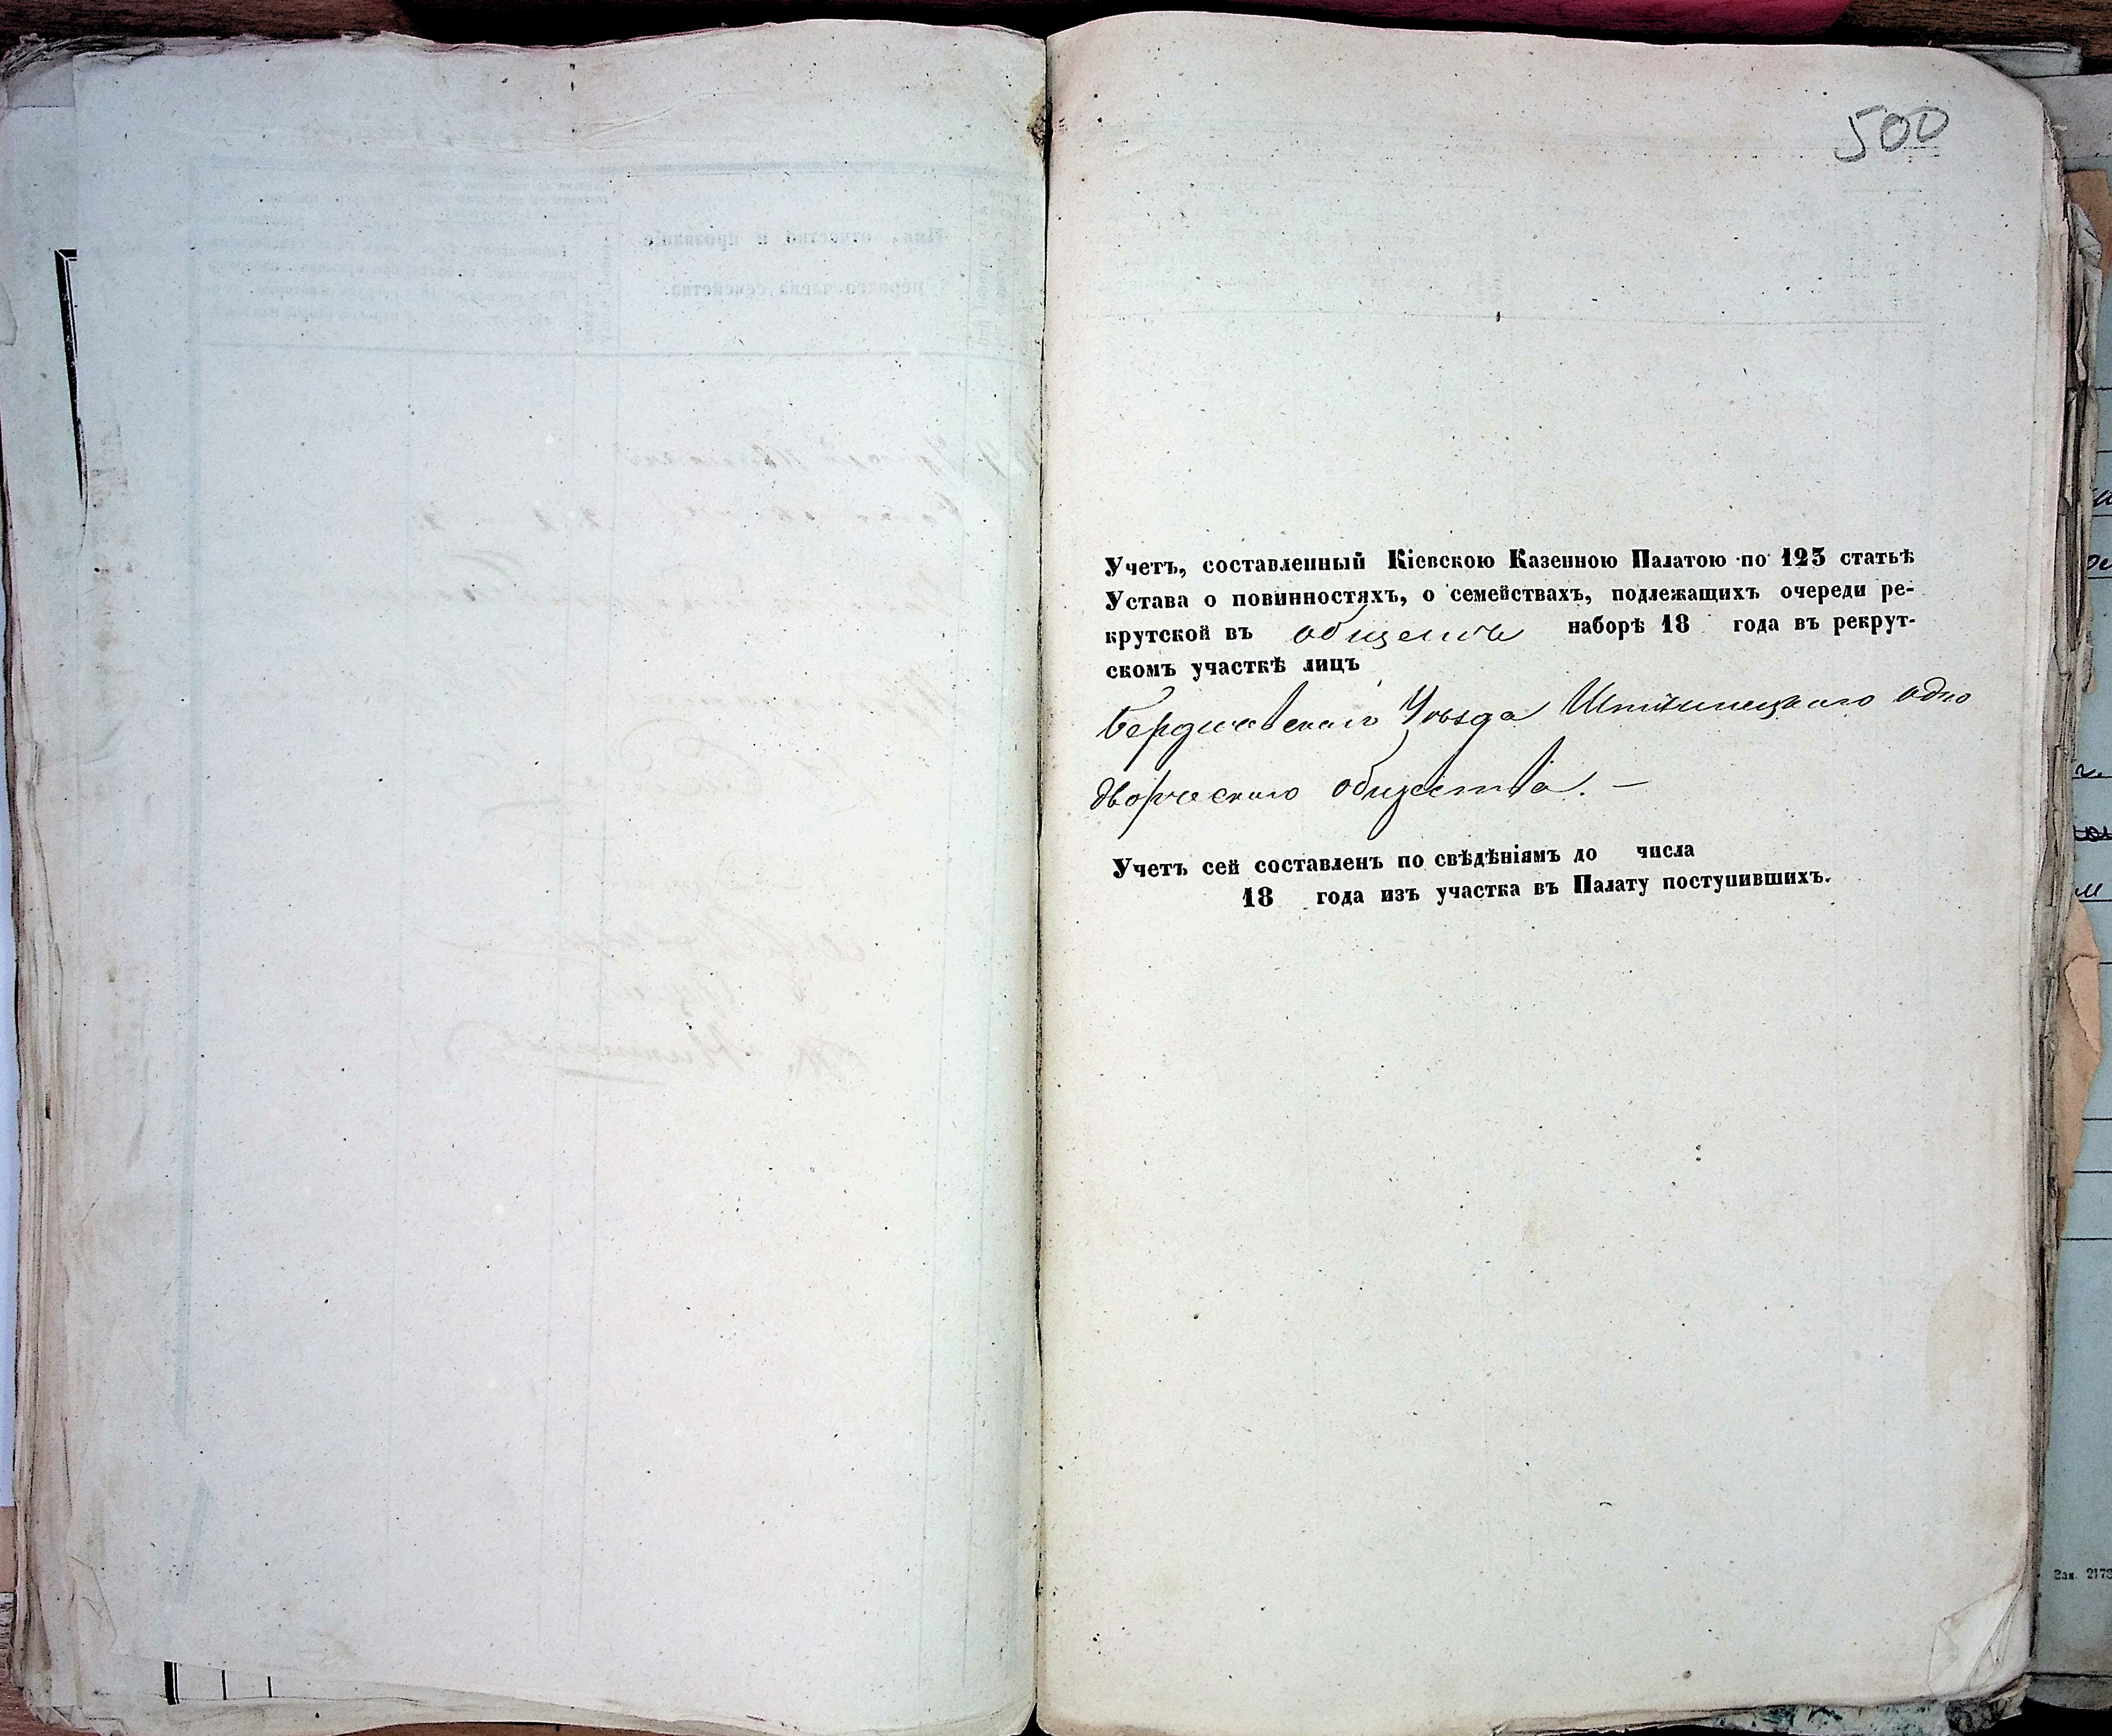 500
Учетъ, составленный Кіевскою Казенною Палатою по 123 статьѣ
Устава о повинностяхъ, о семействахъ, подлежащихъ очереди ре-
крутской въ общемъ наборѣ 18 года въ рекрут-
скомъ участкѣ лицъ
Бердичевскаго Уѣзда одно
дворческаго общества. —
Учетъ сей составленъ по свѣдѣніямъ до числа
18 года изъ участка въ Палату поступившихъ.
Зак. 2178